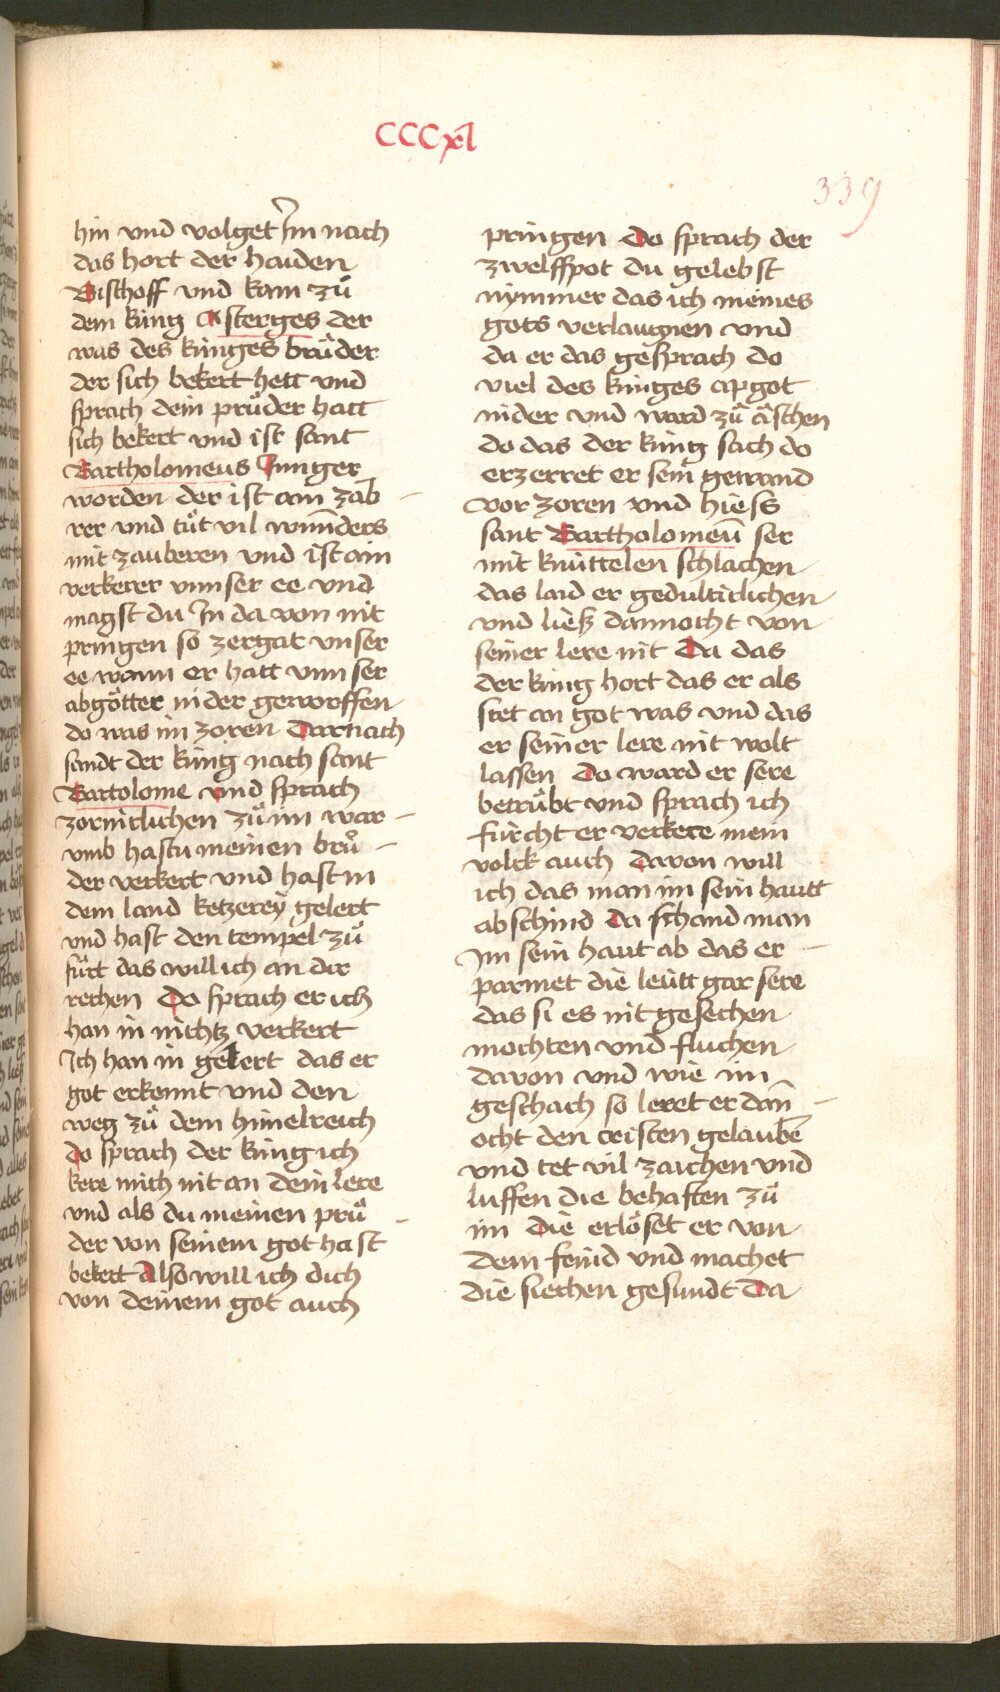 CCCxl
339
hin vnd volget Im nach
das hort der haiden
Bischoff vnd kam zů
dem king Asterges der
was des kinges brůder
der sich bekert hett vnd
sprach dein průder hatt
sich bekert vnd ist sant
Bartholomeus Junger
worden der ist ain zab
rer vnd tůt vil wunders
mit zauberen vnd ist ain
verkerer vnnser ee vnd
magst du In da von nit
pringen so zergat vnser
ee wann er hatt vnnser
abgötter nider geworffen
do was im zoren Darnach
sandt der king nach sant
Bartolome vnd sprach
zornitlichen zů im war
vmb hastu meinen brů
der verkert vnd hast in
dem land ketzerey gelert
vnd hast den tempel zů
fůrt das will ich an dir
rechen Do sprach er ich
han in nichtz verkert
Ich han in gelert das er
got erkennt vnd den
weg zů dem himelreich
do sprach der king ich
kere mich nit an dein lere
vnd als du meinen prů
der von seinem got hast
bekert Also will ich dich
von deinem got auch
pringen Do sprach der
zwelffpot du gelebst
nymmer das ich meines
gots verlaugnen vnd
da er das gesprach do
viel des kinges apgot
nider vnd ward zů åschen
do das der king sach do
erzerret er sein gewand
vor zoren vnd hiess
sant Bartholomeū ser
mit knüttelen schlachen
das laid er gedultitlichen
vnd ließ dannocht von
seiner lere nit Da das
der king hort das er als
stet an got was vnd das
er seiner lere nit wolt
lassen do ward er sere
betrůbt vnd sprach ich
fürcht er verkere mein
volck auch davon will
ich das man im sein hautt
abschind Da schand man
Im sein haut ab das er
parmet die leütt gar sere
das si es nit gesechen
mochten vnd fluchen
davon vnd wie im
geschach so leret er dan̄
ocht den cristen gelaubē
vnd tet vil zaichen vnd
luffen die behaften zů
im die erlöset er von
dem feind vnd machet
die siechen gesundt Da